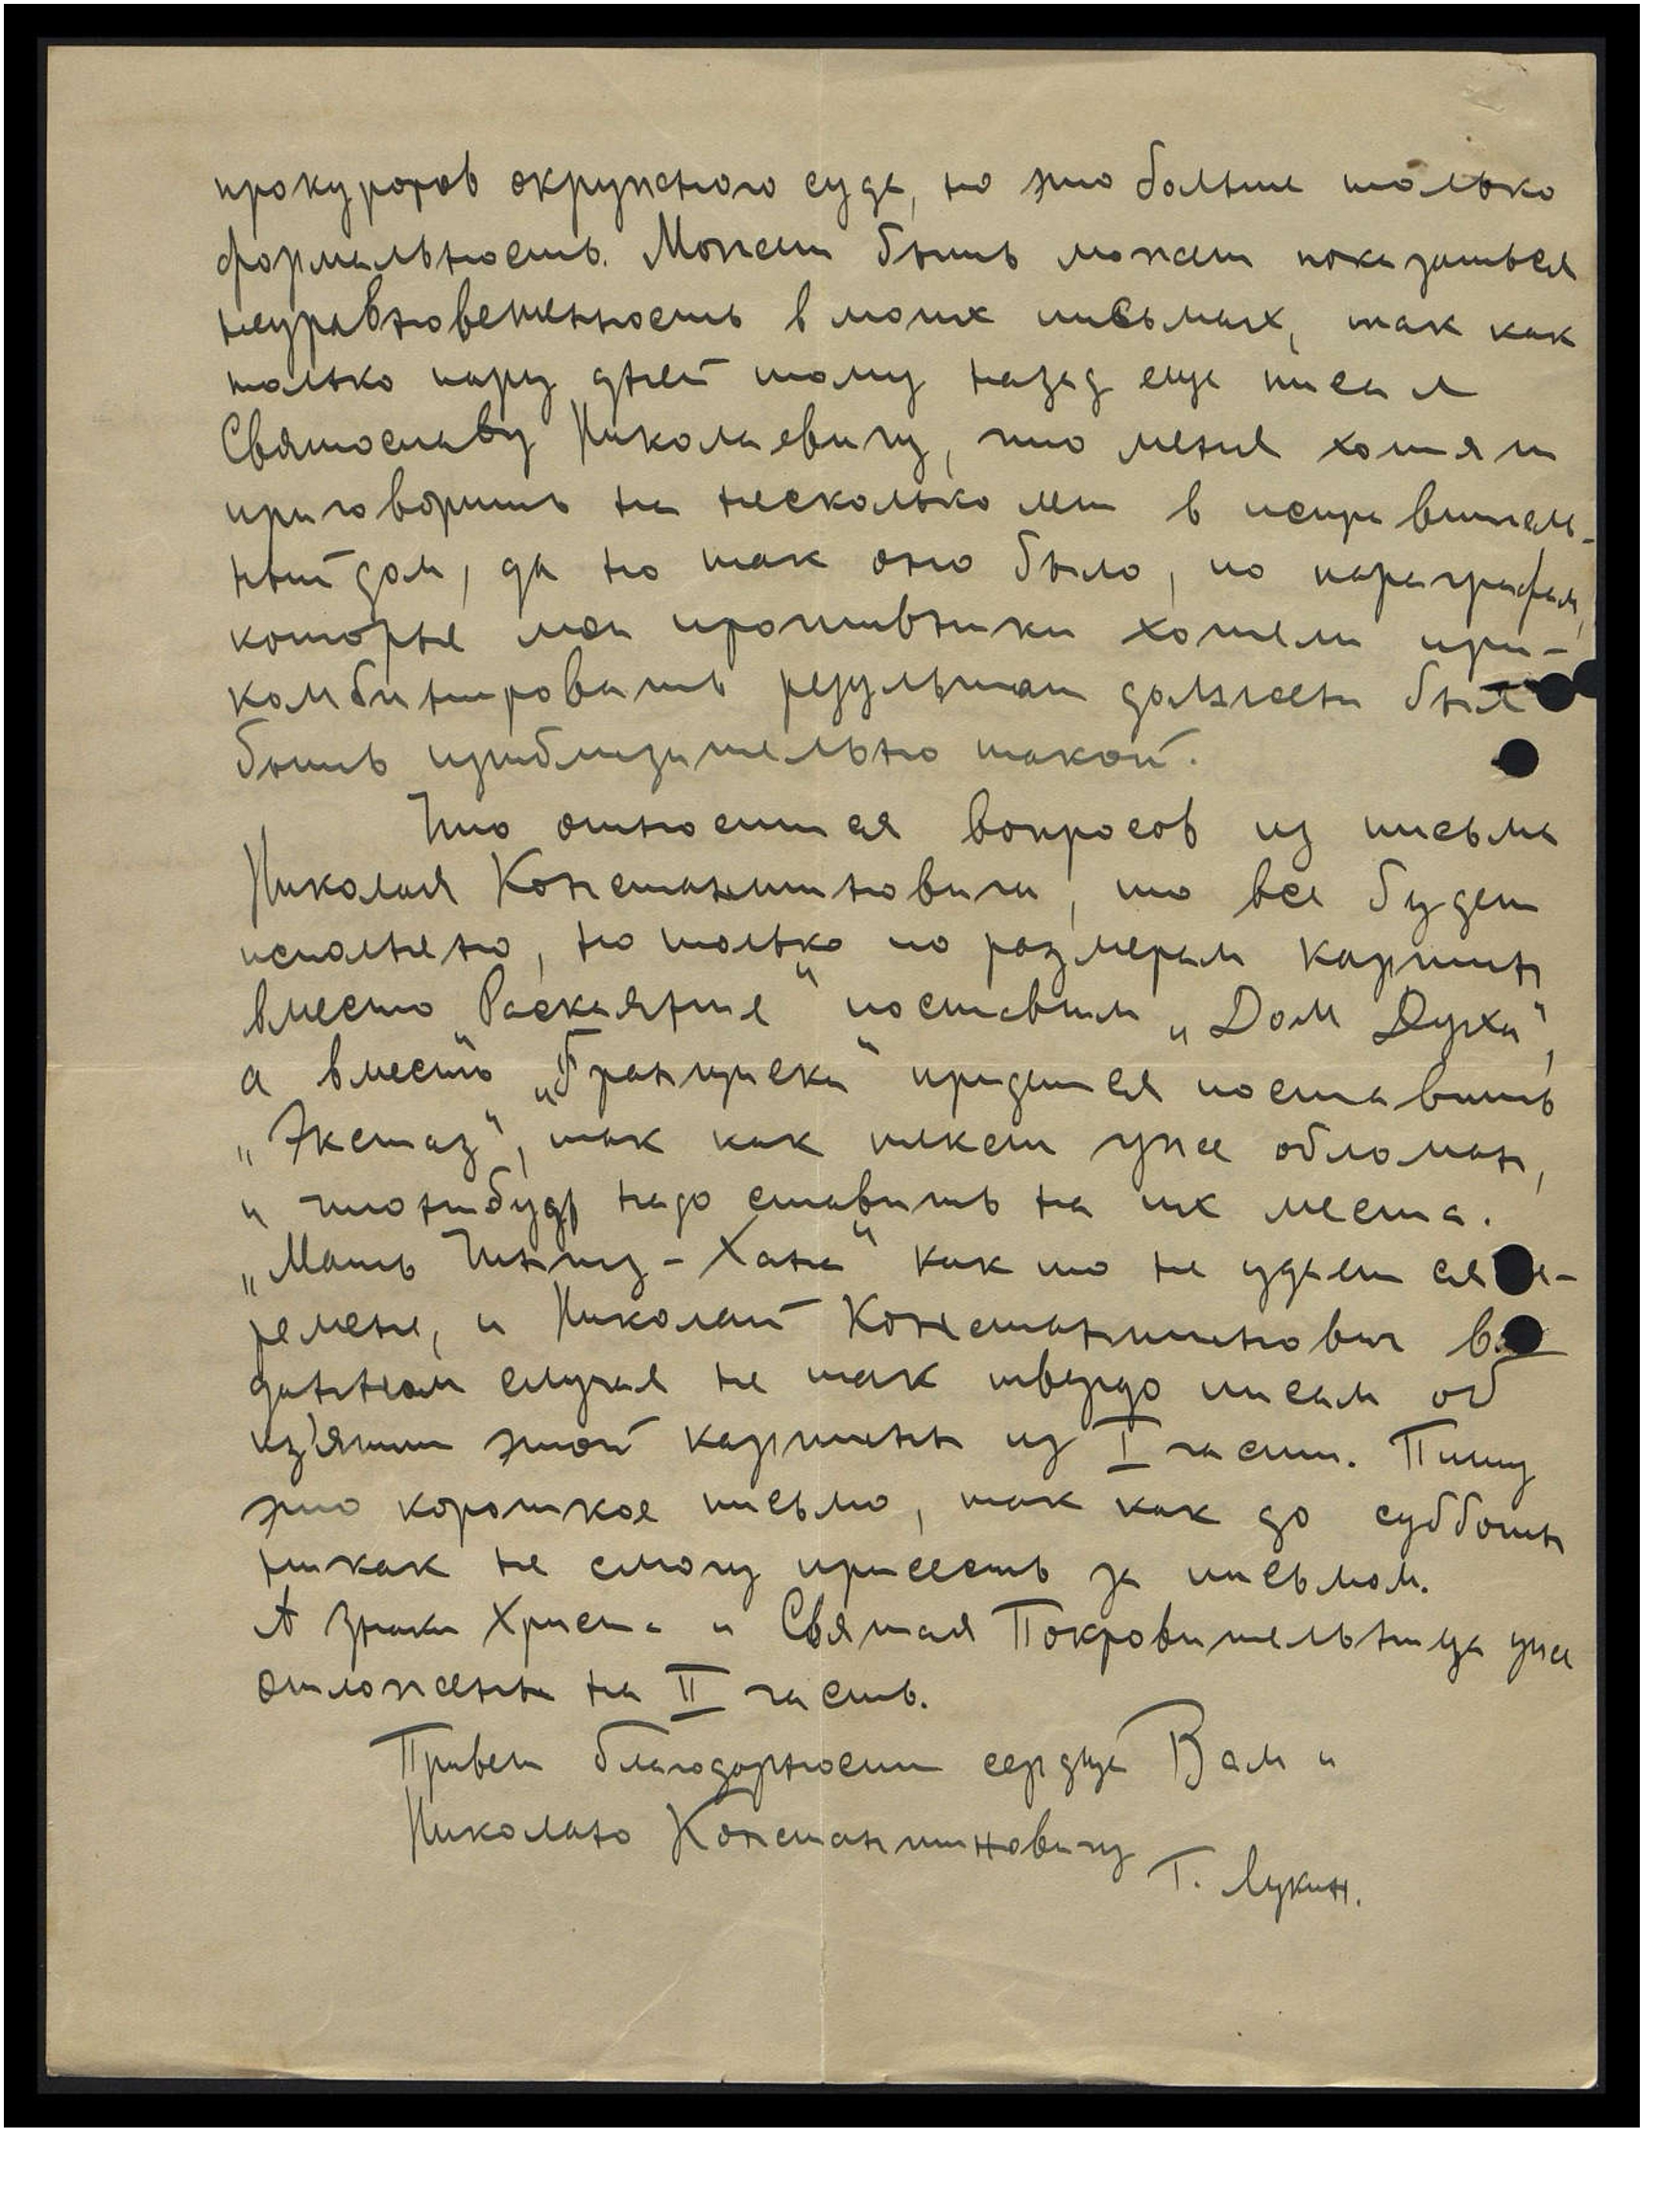 прокуроров окружного суда, но это больше только
формальность. Может быть может показаться
неуравновешенность в моих письмах, так как
только пару дней тому назад еще писал
Святославу Николаевичу, что меня хотят
приговорить на несколько лет в исправитель-
ный дом, да но так оно было, по параграфам,
которые мои противники хотели при-
комбинировать результат должен был
быть приблизительно такой.
Что относится вопросов из письма
Николая Константиновича, то все будет
исполнено, но только по размерам картин
вместо "Раскаяние" поставим „Дом Духа",
а вместо „Франциска" придется поставить
„Экстаз", так как пакет уже обломан,
и что нибудь надо ставить на их места.
„Мать Чингиз-Хана" как то не удается
ремени, и Николай Константинович в
данном случае не так твердо писал об
из'ятии этой картины из I части. Пишу
это короткое письмо, так как до субботы
никак не смогу присесть за письмом.
А Знаки Христа и Святая Покровительница уже
отложены на II часть.
Привет благодарности сердца Вам и
Николаю Константиновичу
Г. Лукин.